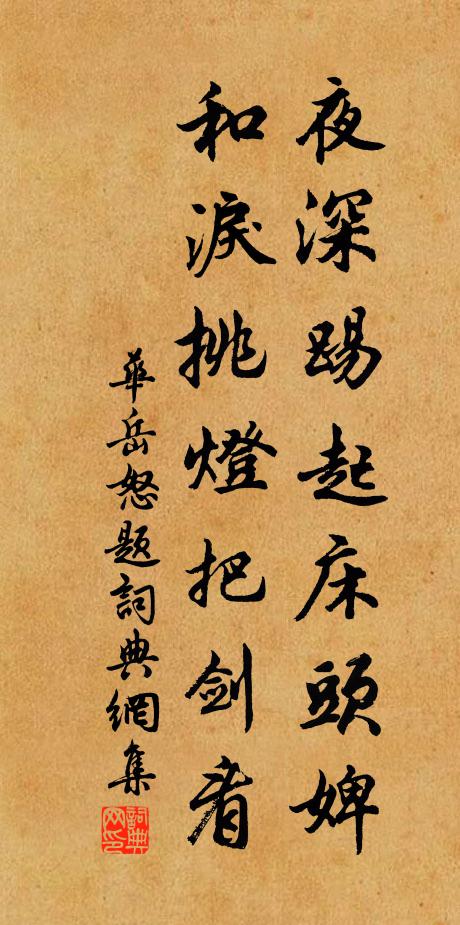 夜深踢起床頭婢
和淚挑燈把剑看
華岳怒題詞典網集
詞典网印